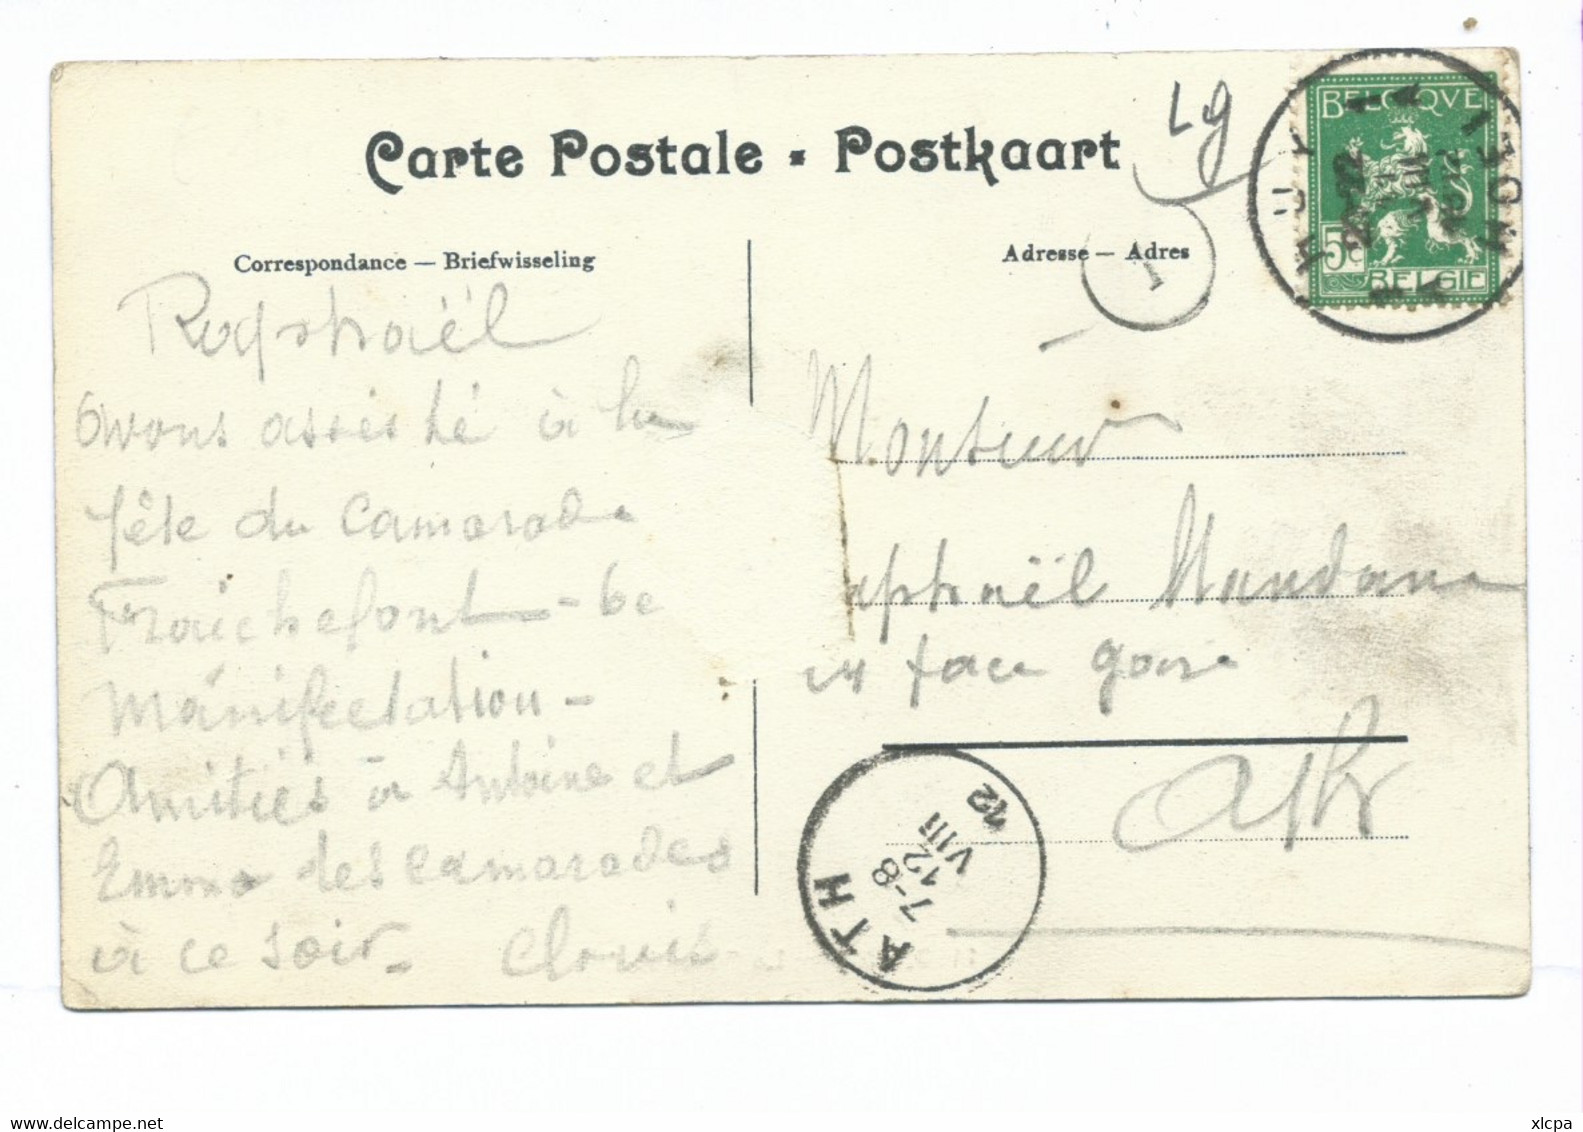 Carte Postale - Postkaart
Lg
Correspondance — Briefwisseling
Adresse — Adres
1
BELGIQVE
5c
BELGIE
Raphaël
avons assisté à la
fête du camarade
Fraichefont - 6e
Manifestation -
Amitiés à Antoine et
Emma des camarades
à ce soir - Clovis
Monsieur
aphaël
face gare
Ath
ATH
7-8
12
VIII
12
xlcpa